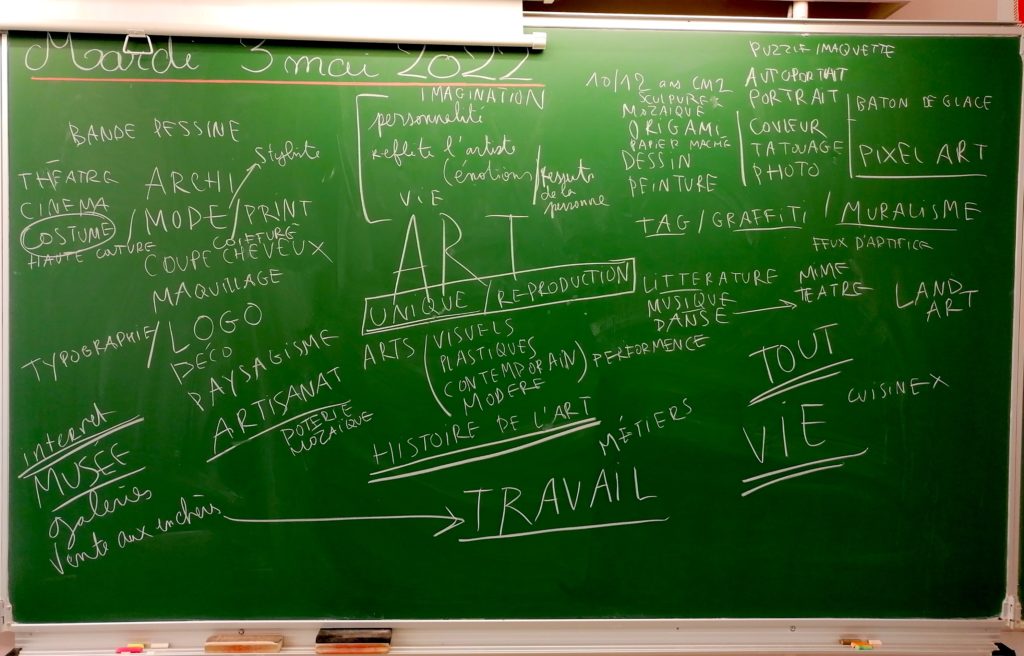 Mardi 3 mai 2022
BANDE DESSINE
THÉATRE
CINEMA
COSTUME
HAUTE COUTURE
ARCHI
Styliste
/ MODE / PRINT
COIFFURE
COUPE CHEVEUX
MAQUILLAGE
TYPOGRAPHIE / LOGO
DECO
PAYSAGISME
ARTISANAT
POTERIE
MOZAÏQUE
internet
MUSÉE
galeries
Vente aux enchèrs
IMAGINATION
personnalité
reflète l'artiste
(émotions
/ Ressenti
de la
personne
VIE
ART
UNIQUE / REPRODUCTION
ARTS (VISUELS
PLASTIQUES
CONTEMPORAIN) PERFORMENCE
MODERE
HISTOIRE DE L'ART
MÉTIERS
TRAVAIL
10/12 ans CM2
SCULPURE
MOZAIQUE
ORIGAMI
PAPIER MACHÉ
DESSIN
PEINTURE
PUZZLE / MAQUETTE
AUTOPORTRAIT
PORTRAIT
COULEUR
TATOUAGE
PHOTO
BATON DE GLACE
PIXEL ART
TAG / GRAFFITI / MURALISME
FEUX D'ARTIFICE
LITTERATURE
MUSIQUE
DANSE
MIME
TEATRE
LAND
ART
TOUT
VIE
CUISINE X